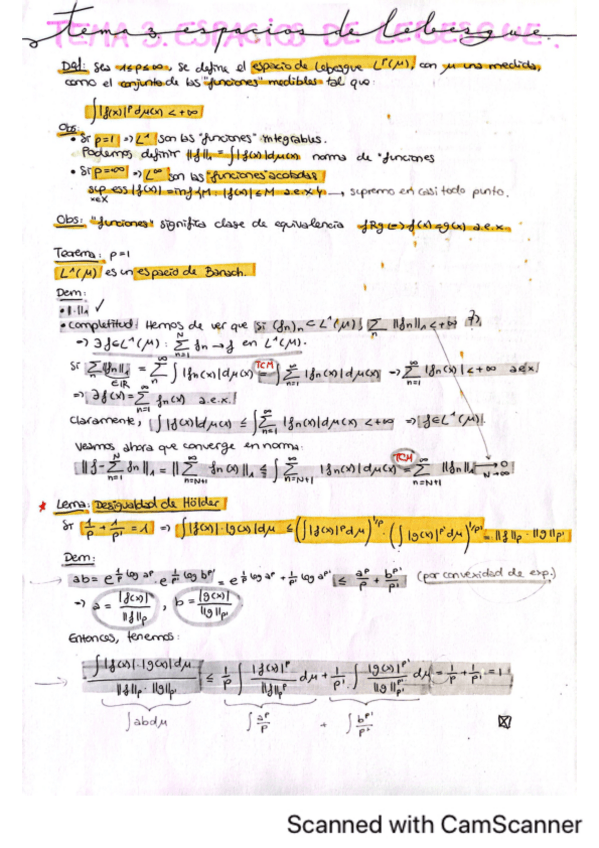 TEMA 3. ESPACIOS DE LEBESGUE.
Def: Sea 1≤p≤∞, se define el espacio de Lebesgue Lᵖ(μ), con μ una medida,
como el conjunto de las "funciones" medibles tal que:
∫|f(x)|ᵖdμ(x) < +∞
Obs:
• Si p=1 ⇒ L¹ son las "funciones" integrables.
Podemos definir ‖f‖₁ = ∫|f(x)|dμ(x) norma de "funciones
• Si p=+∞ ⇒ L^∞ son las "funciones acotadas"
sup ess |f(x)| = inf{M : |f(x)| ≤ M a.e.x} → supremo en casi todo punto.
x∈X
Obs: "funciones" significa clase de equivalencia fRg ⇔ f(x)=g(x) a.e.x.
Teorema: p=1
L¹(μ) es un espacio de Banach.
Dem:
• ‖·‖₁ ✓
• Completitud: Hemos de ver que si (fn)n ⊂ L¹(μ) ; ∑n ‖fn‖₁ < +∞
⇒ ∃f∈L¹(μ) : ∑_{n=1}^{N} fn → f en L¹(μ).
Si ∑‖fn‖₁ = ∑_{n=1}^{∞} ∫|fn(x)|dμ(x) =(TCM) ∫∑_{n=1}^{∞} |fn(x)|dμ(x) ⇒ ∑_{n=1}^{∞} |fn(x)| < +∞ a.e.x
∈ℝ
⇒ ∃f(x) = ∑_{n=1}^{∞} fn(x) a.e.x.
Claramente, ∫|f(x)|dμ(x) ≤ ∫∑_{n=1}^{∞} |fn(x)|dμ(x) < +∞ ⇒ f∈L¹(μ)
Veamos ahora que converge en norma:
‖f-∑_{n=1}^{N} fn‖₁ = ‖∑_{n=N+1}^{∞} fn(x)‖₁ ≤ ∫∑_{n=N+1}^{∞} |fn(x)|dμ(x) =(TCM) ∑_{n=N+1}^{∞} ‖fn‖₁ →_{N→∞} 0
★ Lema: Desigualdad de Hölder
Si 1/p + 1/p' = 1 ⇒ ∫|f(x)|·|g(x)|dμ ≤ (∫|f(x)|ᵖdμ)^{1/p} · (∫|g(x)|^{p'}dμ)^{1/p'} = ‖f‖p · ‖g‖p'
Dem:
ab = e^{1/p log aᵖ} · e^{1/p' log b^{p'}} = e^{1/p log aᵖ + 1/p' log a^{p'}} ≤ aᵖ/p + b^{p'}/p' (por convexidad de exp.)
⇒ a = |f(x)|/‖f‖p , b = |g(x)|/‖g‖p'
Entonces, tenemos:
∫|f(x)|·|g(x)|dμ / ‖f‖p·‖g‖p' ≤ 1/p ∫ |f(x)|ᵖ/‖f‖pᵖ dμ + 1/p' ∫ |g(x)|^{p'}/‖g‖p'^{p'} dμ = 1/p + 1/p' = 1
∫abdμ ∫aᵖ/p + ∫b^{p'}/p'
Scanned with CamScanner